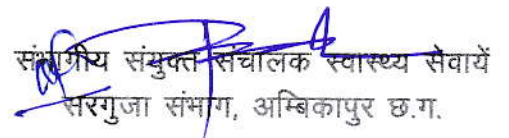 संभागीय संयुक्त संचालक स्वास्थ्य सेवायें
सरगुजा संभाग, अम्बिकापुर छ.ग.